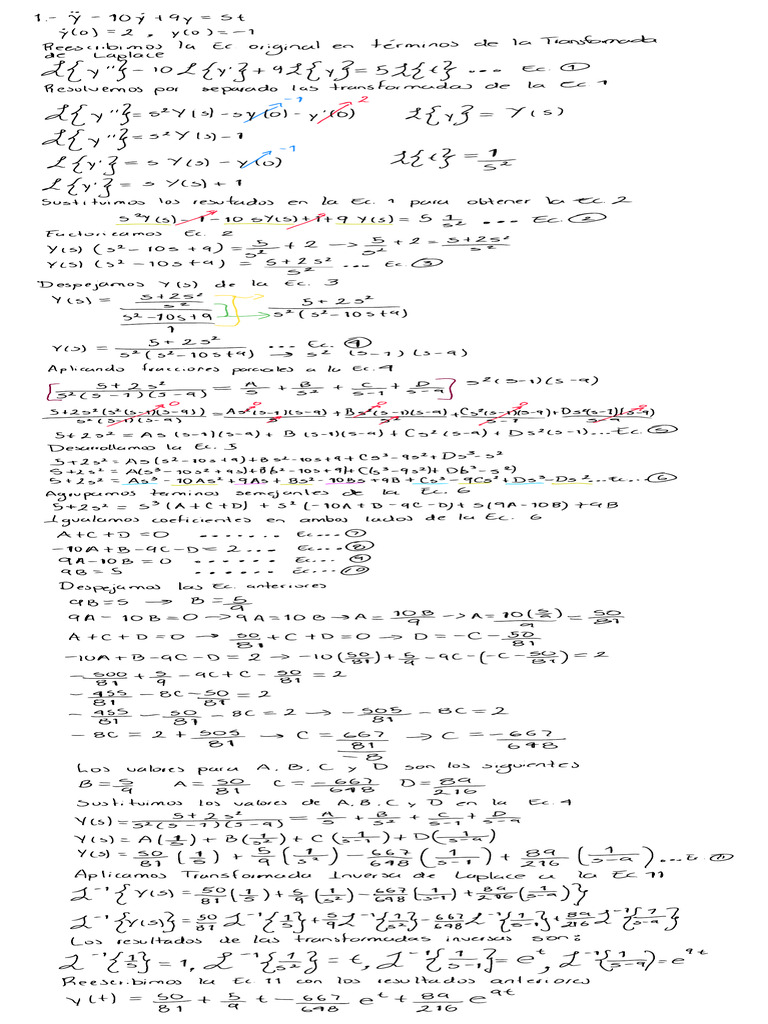 1.- ÿ - 10ẏ + 9y = 5t
ẏ(0) = 2 , y(0) = -1
Reescribimos la Ec original en términos de la Transformada
de Laplace
ℒ{y''} - 10ℒ{y'} + 9ℒ{y} = 5ℒ{t} ... Ec. ①
Resolvemos por separado las transformadas de la Ec 1
ℒ{y''} = s²Y(s) - sy(0) - y'(0) ℒ{y} = Y(s)
-1 2
ℒ{y''} = s²Y(s) - 1
ℒ{y'} = sY(s) - y(0) ℒ{t} = 1/s²
-1
ℒ{y'} = s Y(s) + 1
Sustituimos los resultados en la Ec. 1 para obtener la Ec. 2
s²Y(s) - 1 - 10 sY(s) + 1 + 9 Y(s) = 5 1/s² ... Ec. ②
Factorizamos Ec. 2
Y(s) (s² - 10s + 9) = 5/s² + 2 → 5/s² + 2 = 5+2s²/s²
Y(s) (s² - 10s + 9) = 5+2s²/s² ... Ec. ③
Despejamos Y(s) de la Ec. 3
Y(s) = 5+2s²/s² / s²-10s+9/1 → 5+2s²/s²(s²-10s+9)
Y(s) = 5+2s²/s²(s²-10s+9) ... Ec. ④ → s² (s-1)(s-9)
Aplicando fracciones parciales a la Ec. 4
[5+2s²/s²(s-1)(s-9) = A/s + B/s² + C/s-1 + D/s-9] s²(s-1)(s-9)
5+2s²(s²(s-1)(s-9))/s²(s-1)(s-9) = As²(s-1)(s-9)/s + Bs²(s-1)(s-9)/s² + Cs²(s-1)(s-9)/s-1 + Ds²(s-1)(s-9)/s-9
5+2s² = As(s-1)(s-9) + B(s-1)(s-9) + Cs²(s-9) + Ds²(s-1)... Ec. ⑤
Desarrollamos la Ec. 5
5+2s² = As(s²-10s+9) + Bs²-10s+9 + Cs³-9s² + Ds³-s²
5+2s² = A(s³-10s²+9s) + B(s²-10s+9) + C(s³-9s²) + D(s³-s²)
5+2s² = As³ - 10As² + 9As + Bs² - 10Bs + 9B + Cs³ - 9Cs² + Ds³ - Ds² ... Ec... ⑥
Agrupamos terminos semejantes de la Ec. 6
5+2s² = s³(A+C+D) + s²(-10A+B-9C-D) + s(9A-10B) + 9B
Igualamos coeficientes en ambos lados de la Ec. 6
A+C+D = 0 ....... Ec... ⑦
-10A+B-9C-D = 2 ... Ec... ⑧
9A-10B = 0 ...... Ec... ⑨
9B = 5 ...... Ec... ⑩
Despejamos las Ec. anteriores
9B = 5 → B = 5/9
9A - 10B = 0 → 9A = 10B → A = 10B/9 → A = 10(5/9)/9 = 50/81
A+C+D = 0 → 50/81 + C + D = 0 → D = -C - 50/81
-10A+B-9C-D = 2 → -10(50/81) + 5/9 - 9C - (-C - 50/81) = 2
- 500/81 + 5/9 - 9C + C - 50/81 = 2
- 455/81 - 8C - 50/81 = 2
- 455/81 - 50/81 - 8C = 2 → - 505/81 - 8C = 2
- 8C = 2 + 505/81 → C = 667/81/-8 → C = -667/648
Los valores para A, B, C y D son los siguientes
B = 5/9 A = 50/81 C = -667/648 D = 89/216
Sustituimos los valores de A, B, C y D en la Ec. 4
Y(s) = 5+2s²/s²(s-1)(s-9) = A/s + B/s² + C/s-1 + D/s-9
Y(s) = A(1/s) + B(1/s²) + C(1/s-1) + D(1/s-9)
Y(s) = 50/81 (1/s) + 5/9 (1/s²) - 667/648 (1/s-1) + 89/216 (1/s-9)... Ec 11
Aplicamos Transformada Inversa de Laplace a la Ec 11
ℒ⁻¹{Y(s) = 50/81(1/s) + 5/9(1/s²) - 667/648(1/s-1) + 89/216(1/s-9)}
ℒ⁻¹{Y(s)} = 50/81 ℒ⁻¹{1/s} + 5/9 ℒ⁻¹{1/s²} - 667/648 ℒ⁻¹{1/s-1} + 89/216 ℒ⁻¹{1/s-9}
Los resultados de las transformadas inversas son:
ℒ⁻¹{1/s} = 1, ℒ⁻¹{1/s²} = t, ℒ⁻¹{1/s-1} = eᵗ, ℒ⁻¹{1/s-9} = e⁹ᵗ
Reescribimos la Ec 11 con los resultados anteriores
y(t) = 50/81 + 5/9 t - 667/648 eᵗ + 89/216 e⁹ᵗ